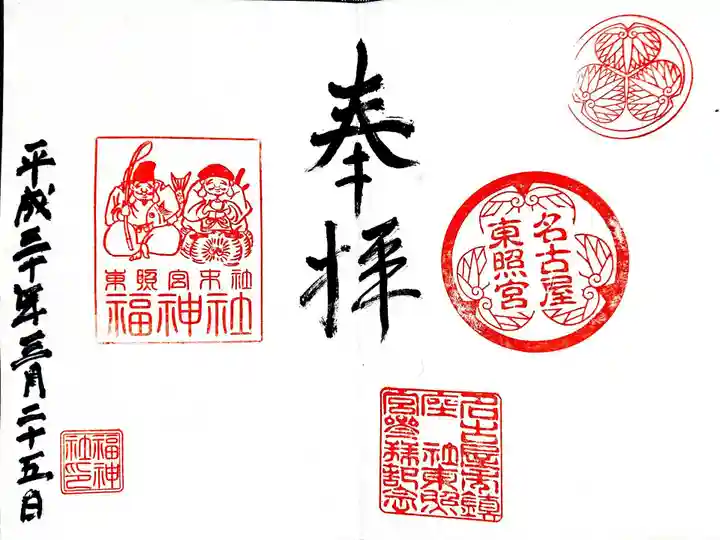 名古屋
東照宮
名古屋市鎮
座 社東照
宮参拝記念
奉拝
東照宮末社
福神社
福神
社印
平成三十年三月二十五日